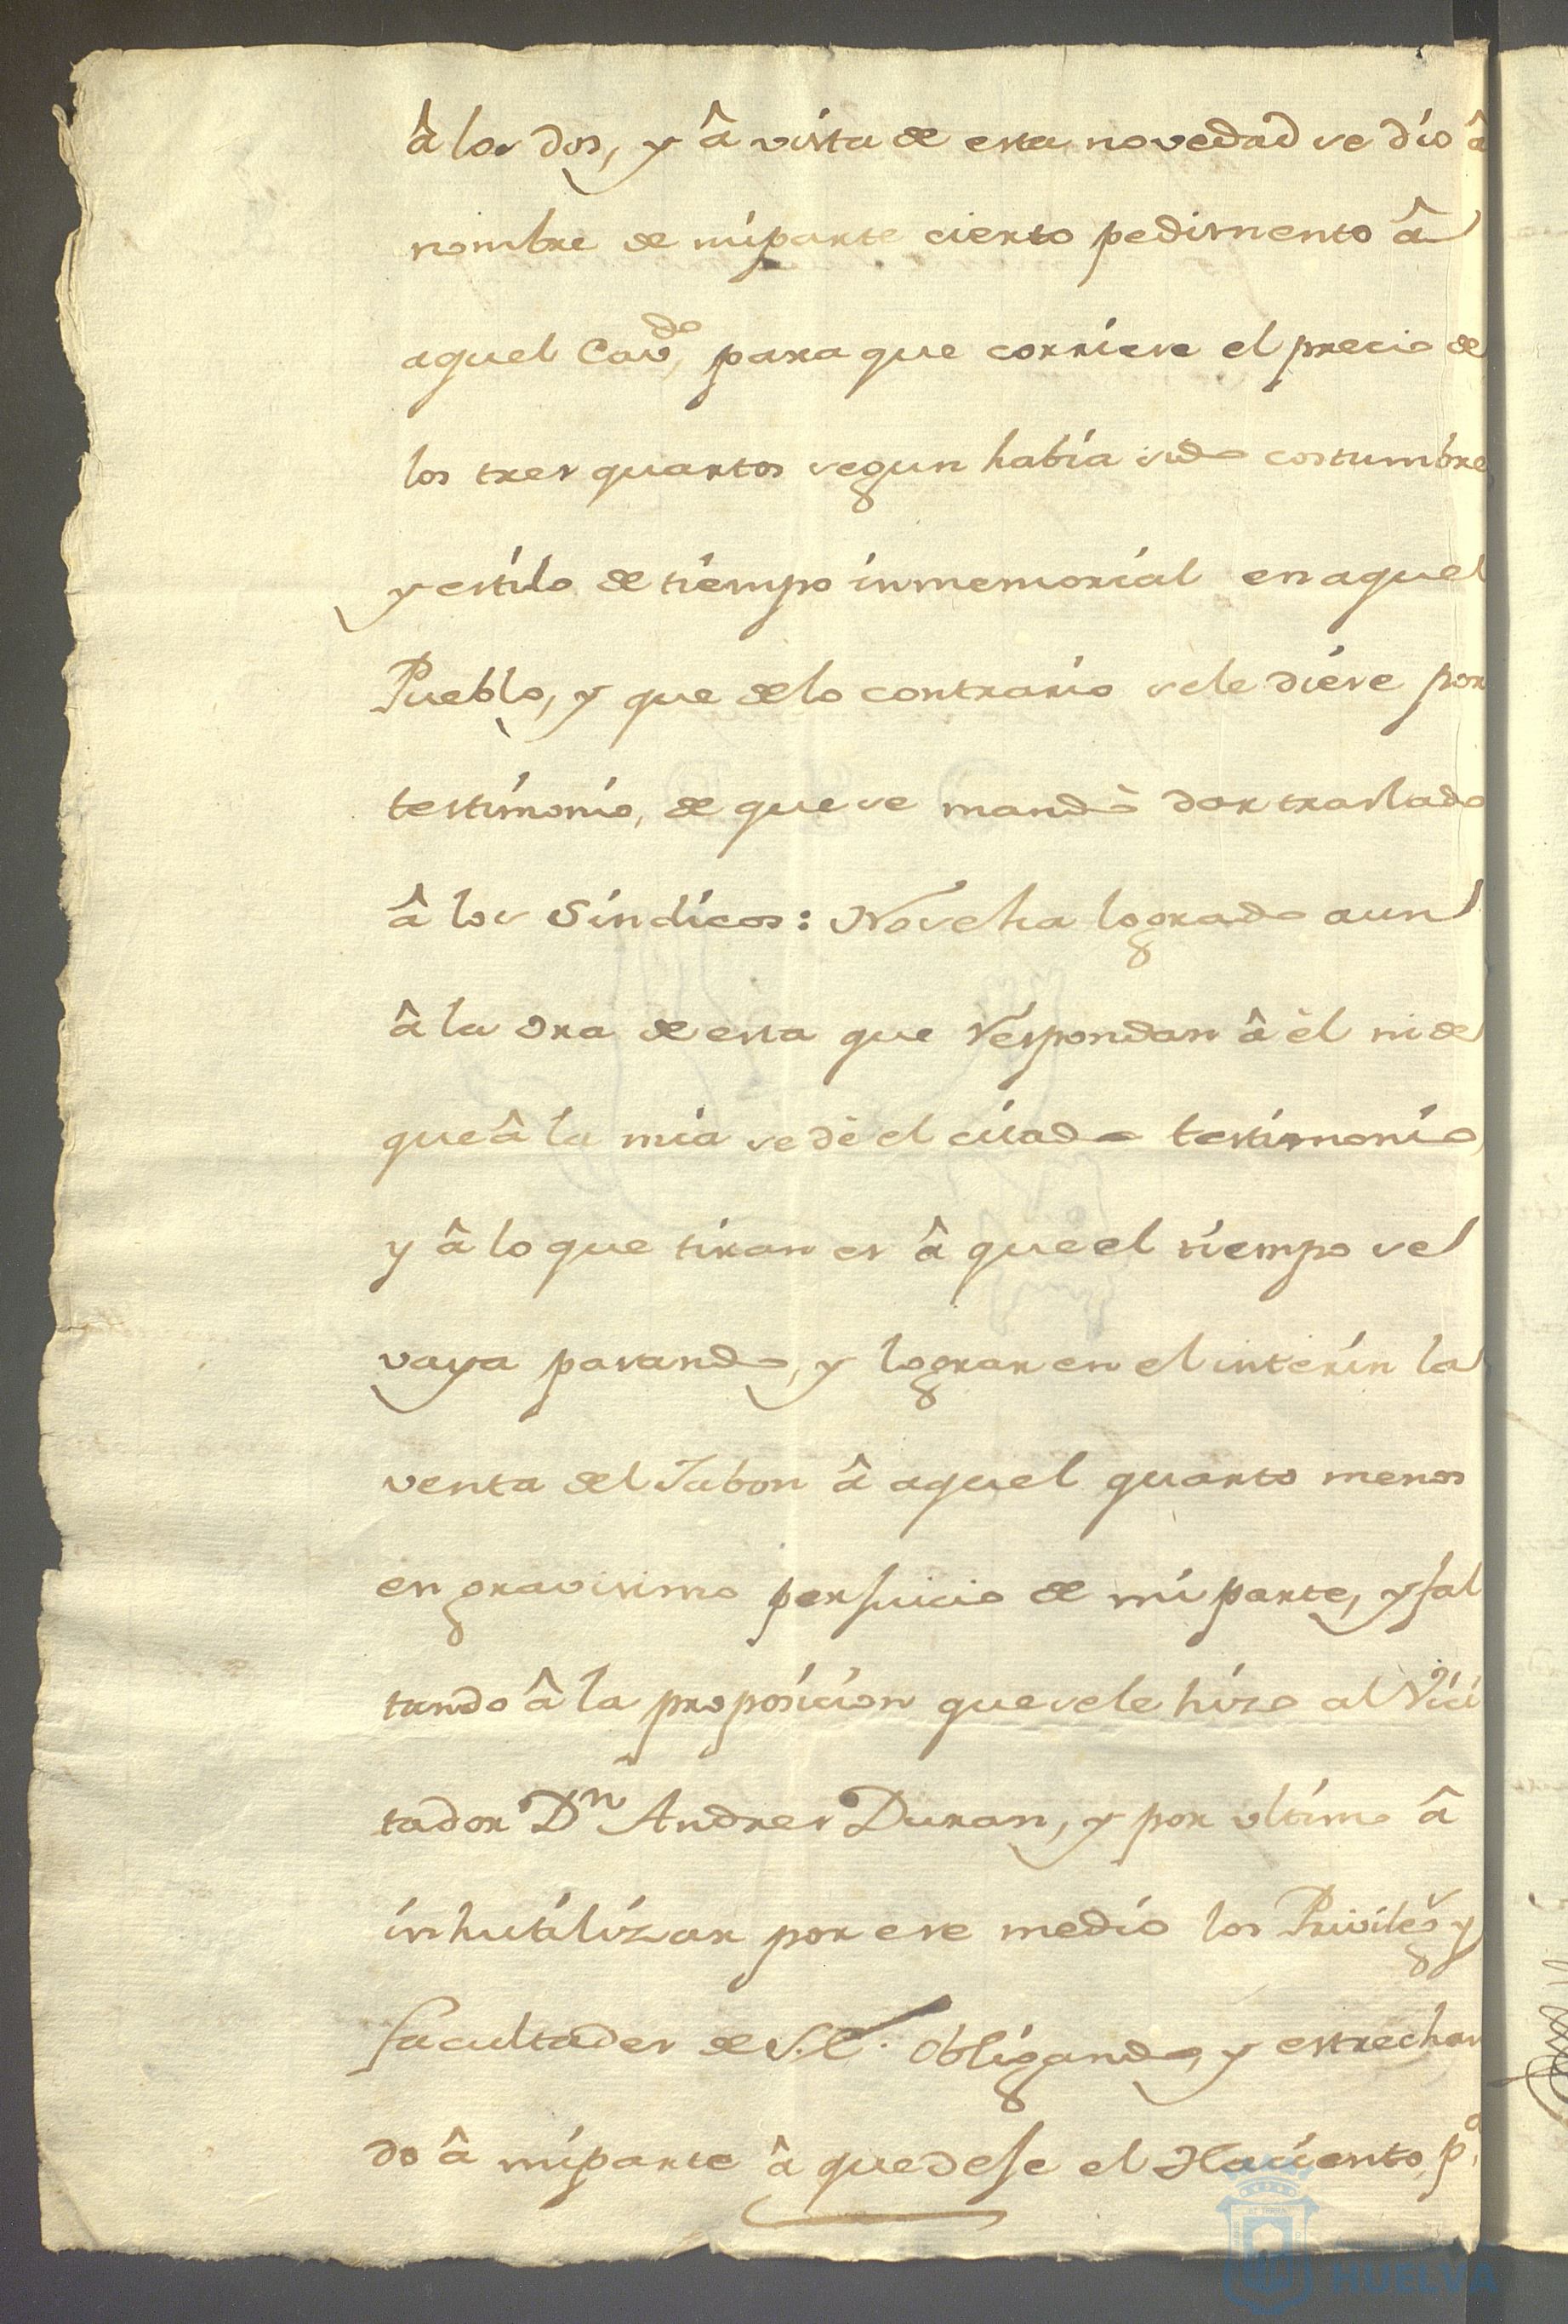 â los dos, y â vista de esta novedad se dio â
nombre de mi parte cierto pedimento â
aquel Cav.do, para que corriese el precio de
los tres quartos segun habia sido costumbre
y estilo de tiempo inmemorial en aquel
Pueblo, y que de lo contrario se le diese por
testimonio, de que se mandò dar traslado
â los Sindicos: No se ha logrado aun
â la ora de esta que respondan â èl ni de
que â la mia se dè el citado testimonio,
y â lo que tiran es â que el tiempo se
vaya pasando, y lograr en el interin la
venta del Jabon â aquel quarto menos
en gravisimo perjuicio de mi parte, y fal
tando â la proposicion que se le hizo al Vici
tador Dn Andres Duran, y por ultimo â
inhutilizar por ese medio los Privileg.s y
facultades de S.E. obligando, y estrechan
do â mi parte â que deje el Haciento, p.a
HUELVA